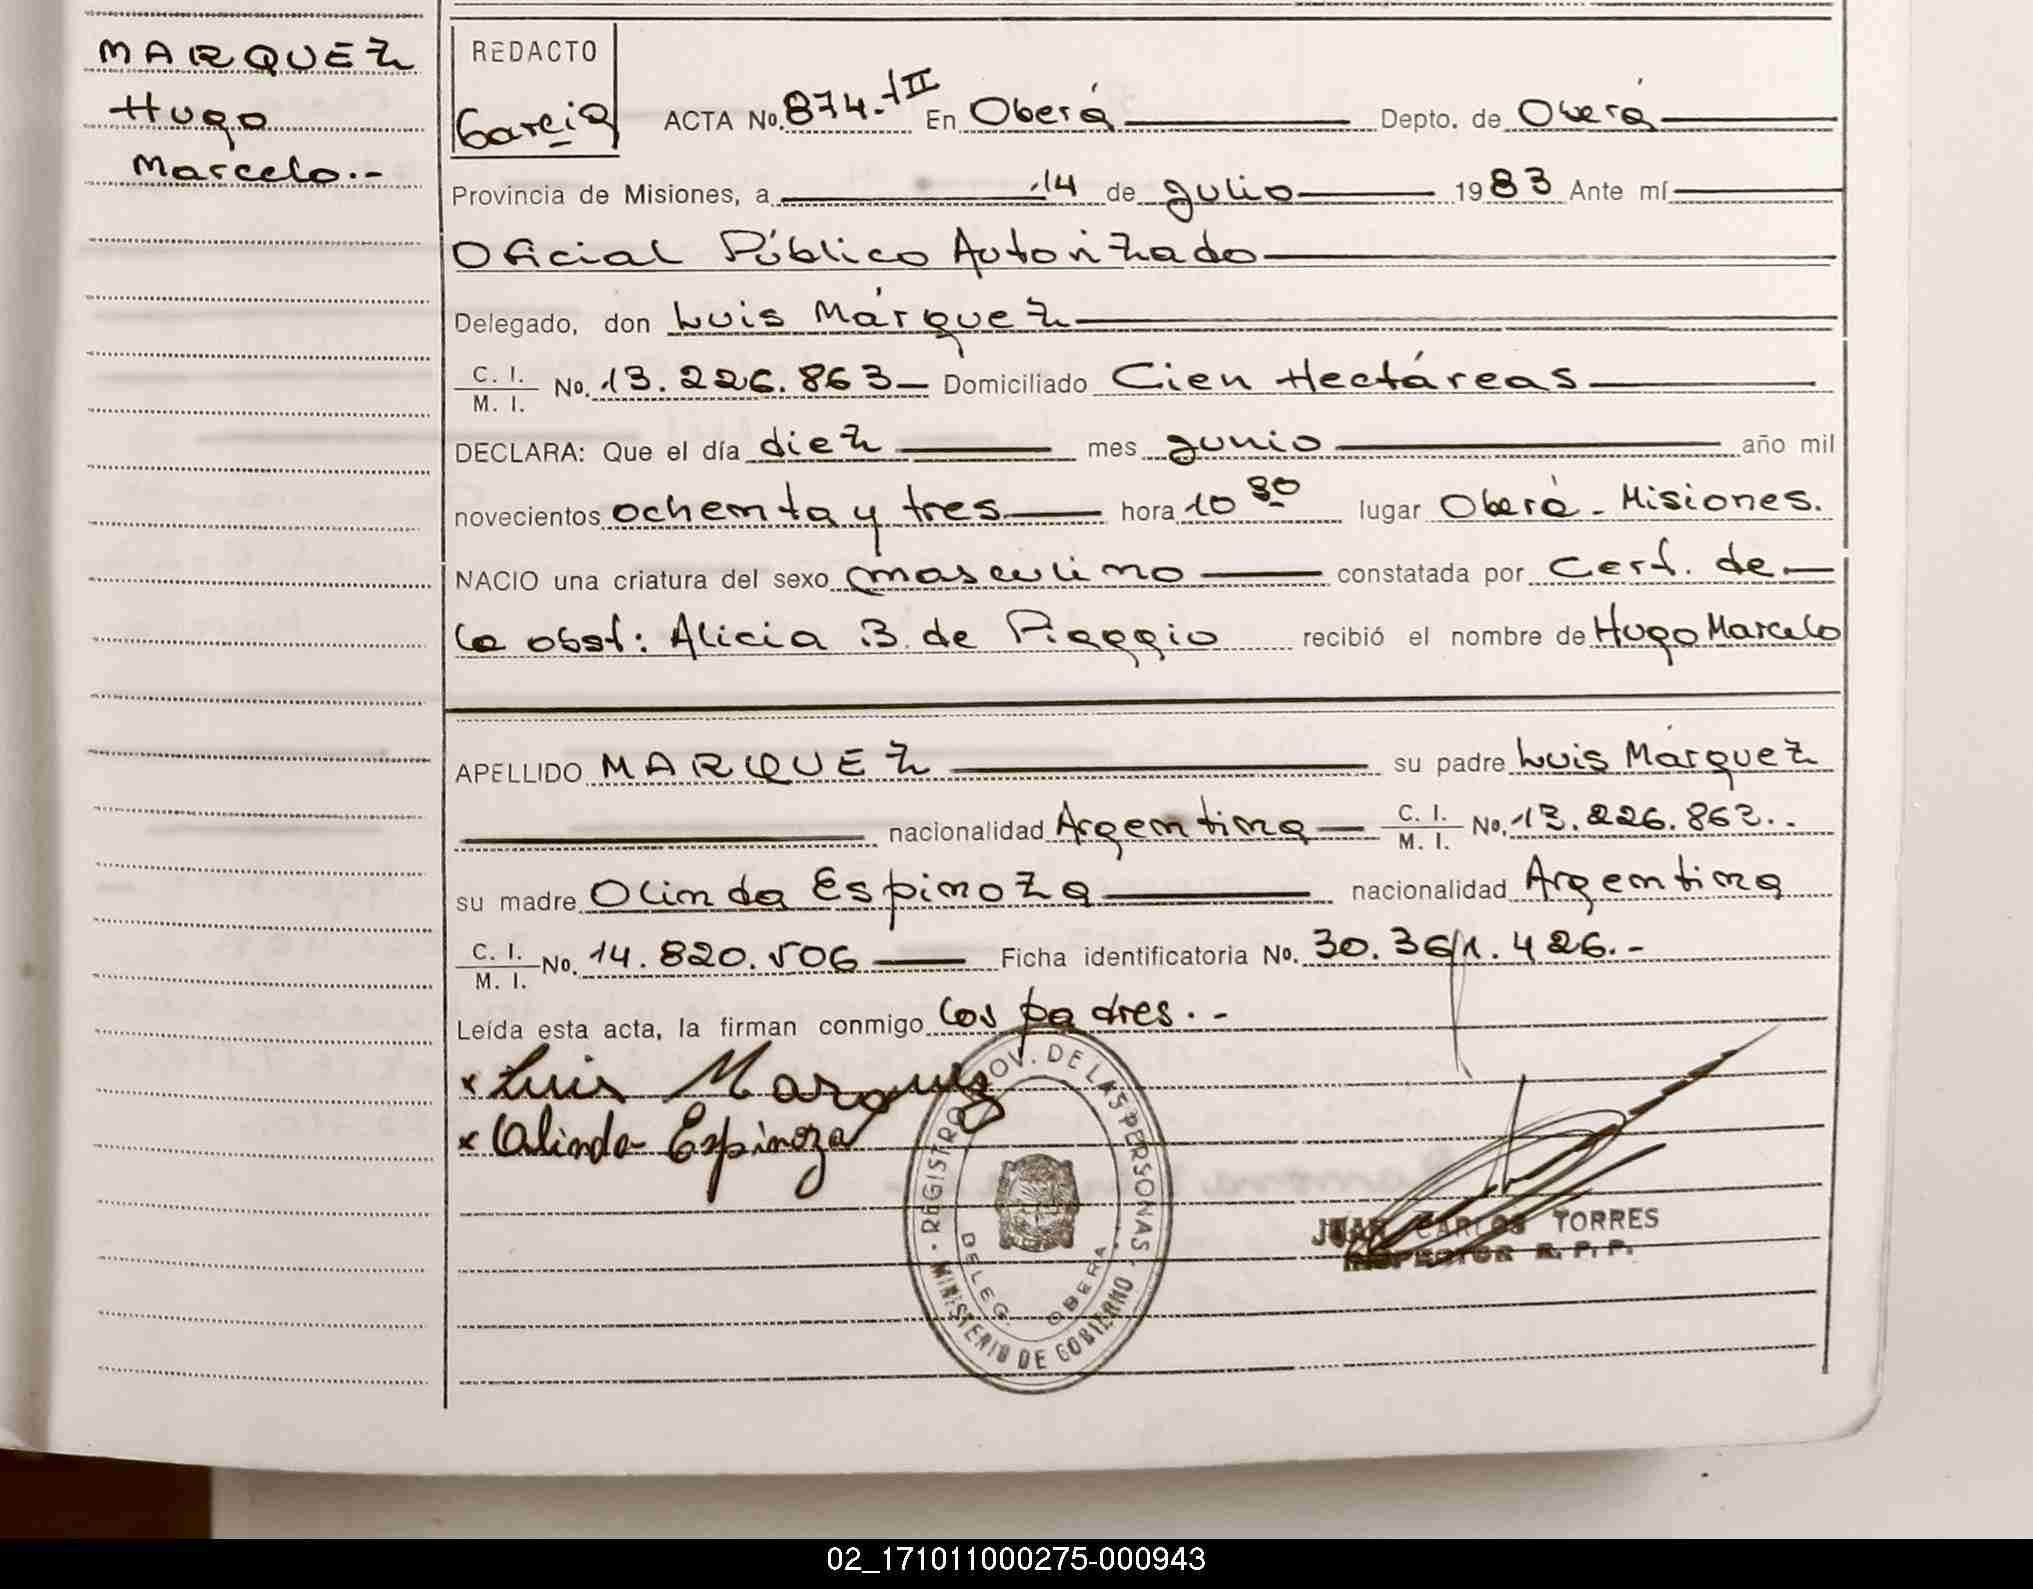 MARQUEZ
Hugo
Marcelo.-
REDACTO
Garcia
ACTA No. 874.-III En Oberá Depto. de Oberá
Provincia de Misiones, a 14 de Julio 1983 Ante mí
Oficial Público Autorizado
Delegado, don Luis Márquez
C. I. / M. I. No. 13.226.863 Domiciliado Cien Hectáreas
DECLARA: Que el día diez mes Junio año mil
novecientos ochenta y tres hora 10 30 lugar Oberá - Misiones.
NACIO una criatura del sexo masculino constatada por Cert. de
la obst: Alicia B. de Piaggio recibió el nombre de Hugo Marcelo
APELLIDO MARQUEZ su padre Luis Márquez
nacionalidad Argentina C. I. / M. I. No. 13.226.863..
su madre Olinda Espinoza nacionalidad Argentina
C. I. / M. I. No. 14.820.506 Ficha identificatoria No. 30.361.426.-
Leída esta acta, la firman conmigo los padres.-
x Luis Marquez
x Olinda Espinoza
REGISTRO PROV. DE LAS PERSONAS
DELEG. OBERA
MINISTERIO DE GOBIERNO
JUAN CARLOS TORRES
INSPECTOR R. P. P.
02_171011000275-000943